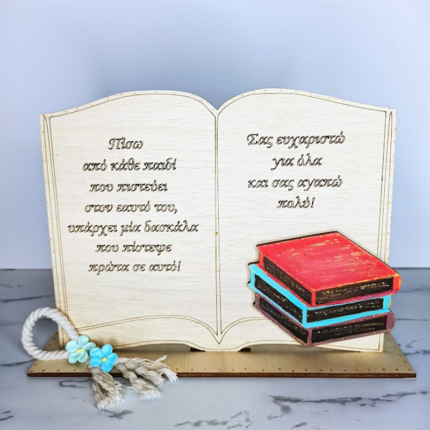 Πίσω
από κάθε παιδί
που πιστεύει
στον εαυτό του,
υπάρχει μία δασκάλα
που πίστεψε
πρώτα σε αυτό!
Σας ευχαριστώ
για όλα
και σας αγαπώ
πολύ!